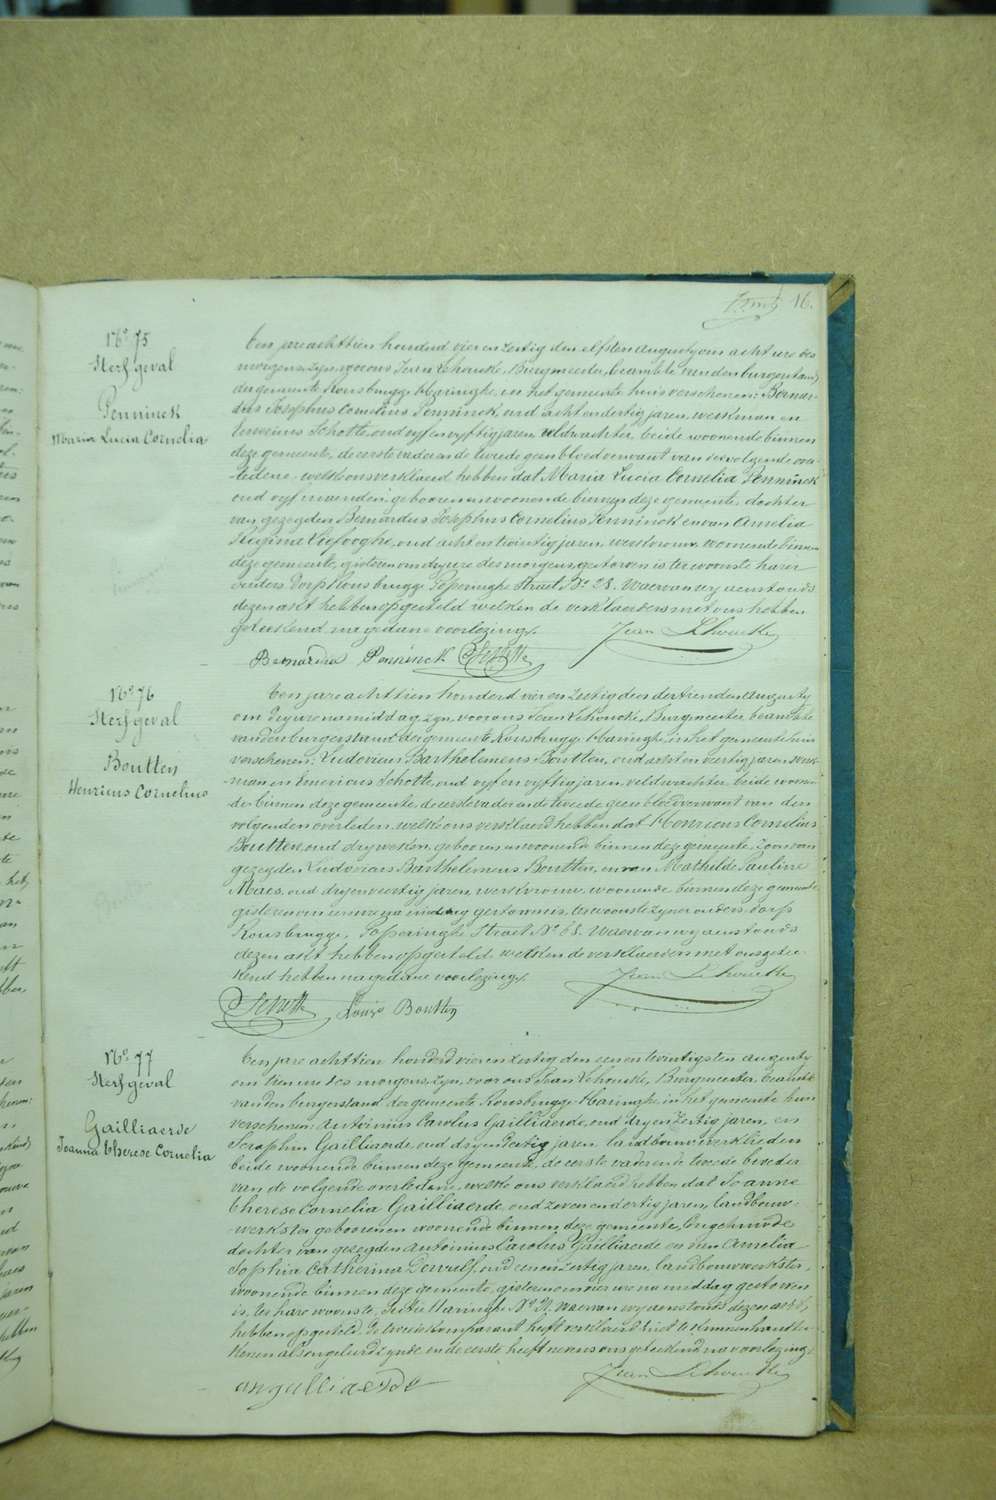 16.
N° 75
Sterfgeval
Penninck
Maria Lucia Cornelia
Ten jare achttien honderd vier en zestig den elfsten augusty om acht ure des
morgens zyn voor ons Jean Lehoucke, Burgmeester, beambte van den burgerstand
der gemeente Rousbrugge-Haringhe, in het gemeente huis verschenen: Bernar-
dus Josephus Cornelius Penninck, oud acht en dertig jaren, werkman en
Emerius Schotte, oud vyf en vyftig jaren, veldwachter, beide woonende binnen
deze gemeente, de eerste vader en de tweede geen bloedverwant van de volgende over-
-ledene, welke ons verklaerd hebben dat Maria Lucia Cornelia Penninck
oud vyf maenden, geboren en woonende binnen deze gemeente, dochter
van gezegden Bernardus Josephus Cornelius Penninck en van Amelia
Regina Liefooghe, oud acht en twintig jaren, werkvrouw, woonende binnen
deze gemeente, gisteren om dry ure des morgens gestorven is ter woonste harer
ouders, dorp Rousbrugge, Poperinghe Straet N° 28. Waervan wy aenstonds
dezen akt hebben opgesteld welken de verklaerders met ons hebben
geteekend na gedane voorlezing.
Jean Lehoucke
Bernardus Penninck Schotte
N° 76
Sterfgeval
Boutten
Henricus Cornelius
Ten jare achttien honderd vier en zestig den dertienden Augusty
om dry ure namiddag, zyn voor ons Jean Lehoucke, Burgmeester, beambte
van den burgerstand der gemeente Rousbrugge-Haringhe, in het gemeente huis
verschenen: Ludovicus Barthelemeus Boutten, oud acht en veertig jaren, werk-
man en Emerius Schotte, oud vyf en vyftig jaren, veldwachter, beide woonen-
de binnen deze gemeente, de eerste vader en de tweede geen bloedverwant van den
volgenden overleden, welke ons verklaerd hebben dat Henricus Cornelius
Boutten, oud dry weken, geboren en woonende binnen deze gemeente, zoon van
gezegden Ludovicus Barthelemeus Boutten, en van Mathilde Pauline
Maes, oud dry en veertig jaren, werkvrouw, woonende binnen deze gemeente,
gisteren ten een ure na middag gestorven is, ter woonste zyner ouders, dorp
Rousbrugge, Poperinghe Straet N° 68. Waervan wy aenstonds
dezen akt hebben opgesteld, welken de verklaerders met ons getee-
kend hebben na gedane voorlezing.
Jean Lehoucke
Schotte Louis Boutten
N° 77
Sterfgeval
Gailliaerde
Joanna Therese Cornelia
Ten jare achttien honderd vier en zestig den een en twintigsten augusty
om tien ure des morgens, zyn voor ons Jean Lehoucke, Burgmeester, beambte
van den burgerstand der gemeente Rousbrugge-Haringhe, in het gemeente huis
verschenen: Antonius Carolus Gailliaerde, oud dry en zestig jaren, en
Seraphin Gailliaerde, oud dry en dertig jaren, landbouwwerklieden
beide woonende binnen deze gemeente, de eerste vader en de tweede broeder
van de volgende overledene, welke ons verklaerd hebben dat Joanna
Therese Cornelia Gailliaerde, oud zeven en dertig jaren, landbouw-
-werkster geboren en woonende binnen deze gemeente, ongehuwde
dochter van gezegden Antonius Carolus Gailliaerde en van Amelia
Sophia Catherina Dewulf, oud een en zestig jaren, landbouwwerkster,
woonende binnen deze gemeente, gisteren om vier ure na middag gestorven
is, ter hare woonste, Sectie Haringhe N° 21, waervan wy aenstonds dezen akt
hebben opgesteld. De tweede komparant heeft verklaerd niet te kunnen handtee-
kenen als ongeleerd zynde en de eerste heeft nevens ons geteekend na voorlezing.
an gailliaerde Jean Lehoucke